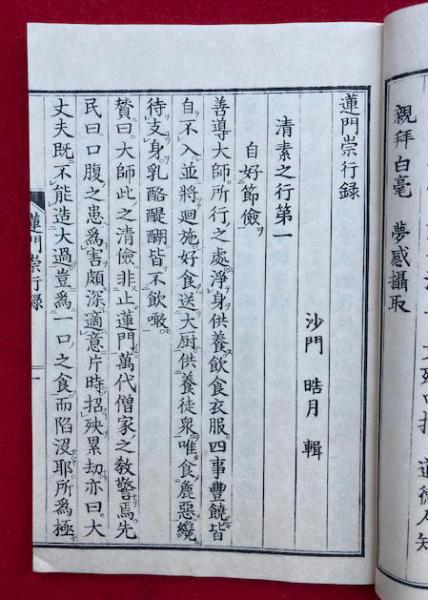 親拜白毫　夢感攝取
蓮門崇行録
沙門　晧月　輯
清素之行第一
自好節儉
善導大師所行之處淨身供養飲食衣服。四事豐饒皆
自不入並將迴施好食送大厨供養徒衆唯食麁惡纔
待支身。乳酪醍醐皆不飲噉。
賛曰。大師此之清儉非止蓮門萬代僧家之教警焉先
民曰口腹之患爲害頗深適意片時。招殃累劫。亦曰。大
丈夫既不能造大過豈爲一口之食而陷沒耶。所爲極
蓮門崇行録
一